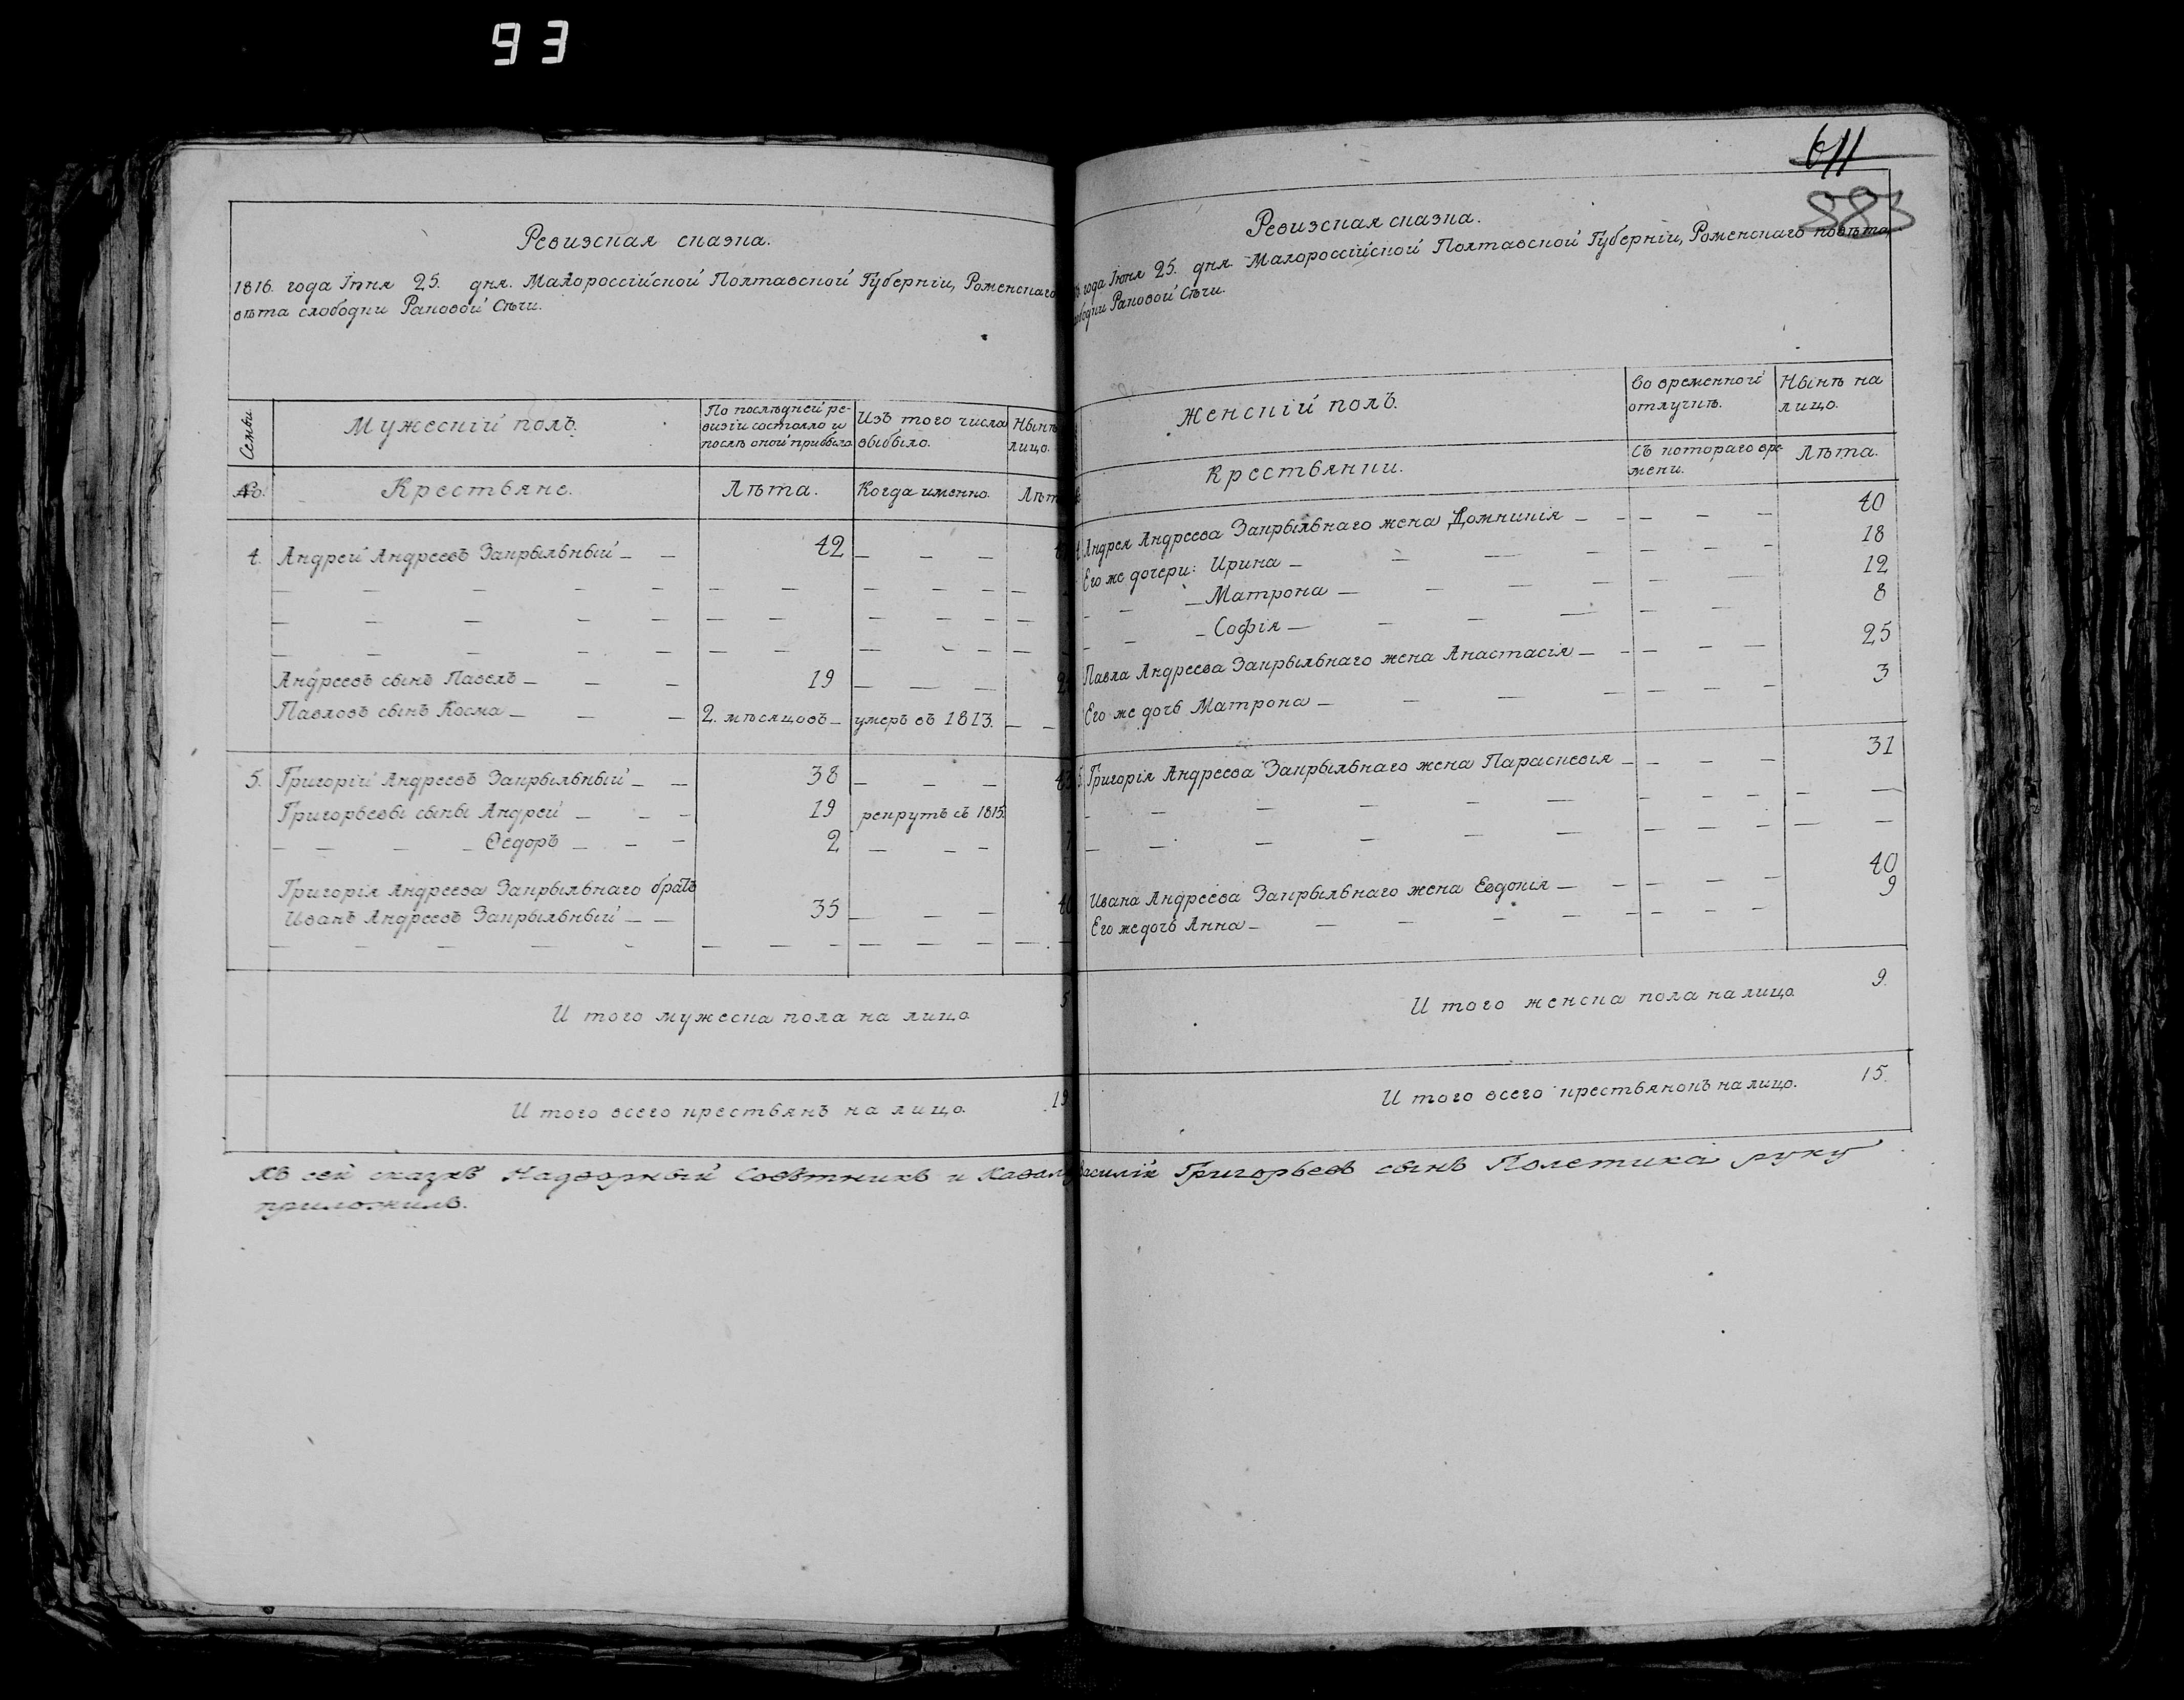 93
Ревизская сказка.
1816. года Іюня 25. дня. Малороссійской Полтавской Губерніи, Роменскаго
вѣта слободки Раковой Сѣчи.
Семьи
Мужескій полъ.
По послѣдней ре-
визіи состояло и
послѣ оной прибыло
Изъ того числа
выбыло.
Нынѣ
лицо.
No.
Крестьяне.
Лѣта.
Когда именно.
Лѣт
4. Андрей Андреевъ Закрыльный — — 42 — — —
Андреевъ сынъ Павелъ — — — 19 — — —
Павловъ сынъ Косма — — — 2. мѣсяцовъ — умеръ въ 1813. — —
5. Григорій Андреевъ Закрыльный — — 38 — — — 43
Григорьевы сыны Андрей — — — 19 рекрутъ съ 1815.
— — — — Ѳедоръ — — — 2 — — — 7
Григорія Андреева Закрыльнаго братъ
Иванъ Андреевъ Закрыльный — — 35 — — — 40
И того мужеска пола на лицо. 5
И того всего крестьянъ на лицо. 19
611
883
Ревизская сказка.
года Іюня 25. дня. Малороссійской Полтавской Губерніи, Роменскаго повѣта,
Раковой Сѣчи.
Женскій полъ.
Во временной
отлучкѣ.
Нынѣ на
лицо.
Крестьянки.
Съ котораго вре-
мени.
Лѣта.
4. Андрея Андреева Закрыльнаго жена Домникія — — — — — 40
Его же дочери: Ирина — — — — — — — 18
— — — Матрона — — — — — — 12
— — — Софія — — — — — — 8
Павла Андреева Закрыльнаго жена Анастасія — — — — — 25
Его же дочь Матрона — — — — — — — 3
5. Григорія Андреева Закрыльнаго жена Параскевія — — — — 31
Ивана Андреева Закрыльнаго жена Евдокія — — — — — 40
Его же дочь Анна — — — — — — — — 9
И того женска пола на лицо. 9.
И того всего крестьянокъ на лицо. 15.
Къ сей сказкѣ Надворный Совѣтникъ и Кавалеръ Василій Григорьевъ сынъ Полетика руку
приложилъ.